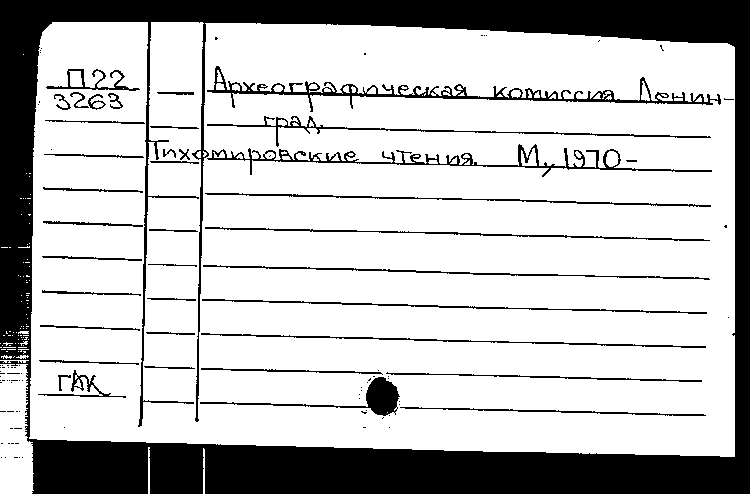 П22
3263
Археографическая комиссия Ленин-
град.
Тихомировские чтения. М., 1970-
ГАК